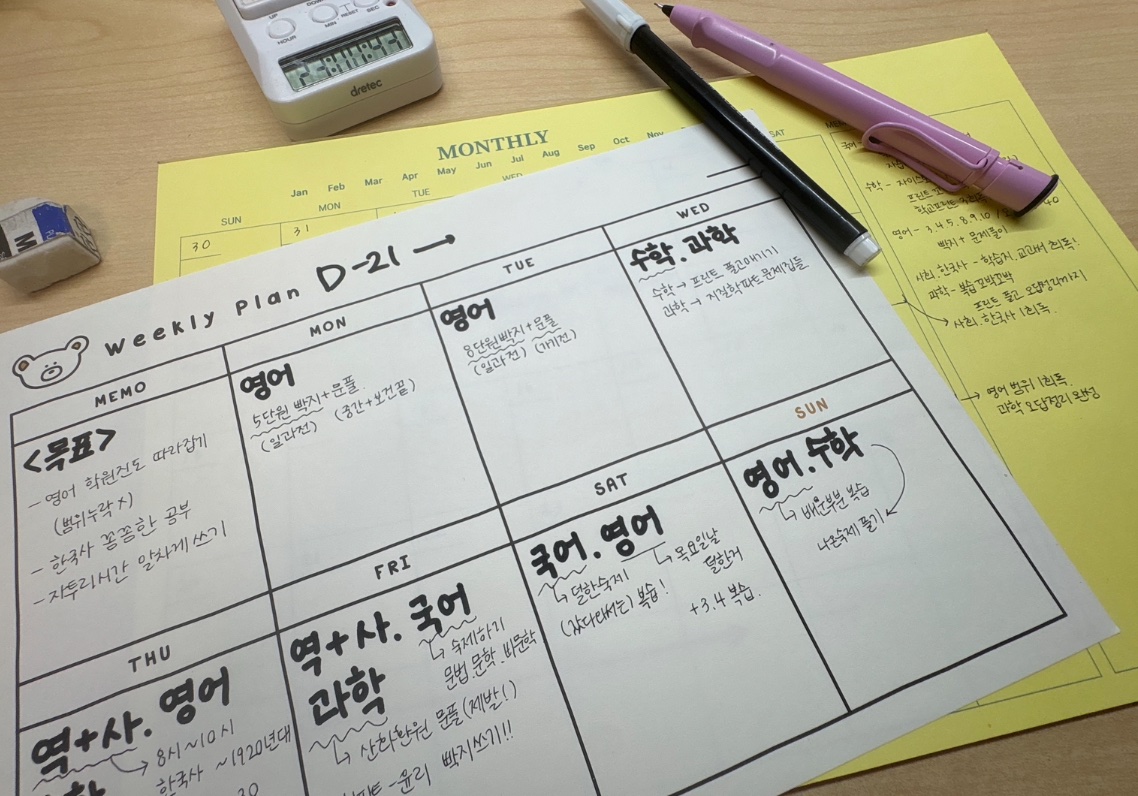 UP
HOUR
MIN
RESET
SEC
23:41 43
dretec
MONTHLY
Jan Feb Mar Apr May Jun Jul Aug Sep Oct Nov
SUN MON TUE WED SAT
30 31
국어
수학 -
프린트
영어 - 3.4.5.8.9.10 / 40
빡지 + 문제풀이
사회.한국사 - 학습지, 교과서 1회독!
과학 - 복습 꼬박꼬박
프린트 풀고 오답정리까지
→ 사회.한국사 1회독.
→ 영어 범위 1회독.
과학 오답정리 완성
weekly plan D-21 →
MEMO
<목표>
- 영어 학원진도 따라잡기
(범위누락 X)
- 한국사 꼼꼼한 공부
- 자투리시간 알차게 쓰기
MON
영어
5단원 빡지+문풀.
(일과전) (중간+보건끝)
TUE
영어
8단원빡지+문풀
(일과전) (가기전)
WED
수학.과학
수학 → 프린트 풀고얘기기
과학 → 지질학파트 문제집들
THU
역+사. 영어
→ 8시~10시
한국사 ~1920년대
30
FRI
역+사. 국어
↳ 숙제하기
문법.문학.비문학
과학
↳ 산화환원 문풀(제발!)
-윤리 빡지쓰기!!
SAT
국어.영어
↳ 덜한숙제!
(갔다와서는) 복습!
→ 목요일날
덜한거
+3.4 복습.
SUN
영어.수학
↳ 배운부분 복습
나온숙제 풀기